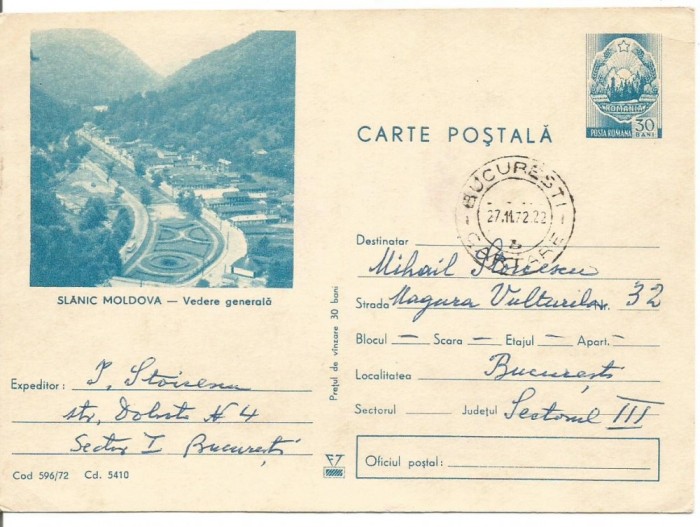 ROMANIA
POSTA ROMANA 30 BANI
CARTE POŞTALĂ
BUCUREŞTI
27.11.72.22
SLĂNIC MOLDOVA — Vedere generală
Destinatar Mihail Stoicescu
Strada Magura Vulturilor Nr. 32
Blocul — Scara — Etajul — Apart. —
Localitatea Bucureşti
Sectorul Judeţul Sectorul III
Oficiul poştal:
Preţul de vînzare 30 bani
Expeditor: I. Stoicescu
str. N 4
Sector I Bucureşti
Cod 596/72 Cd. 5410